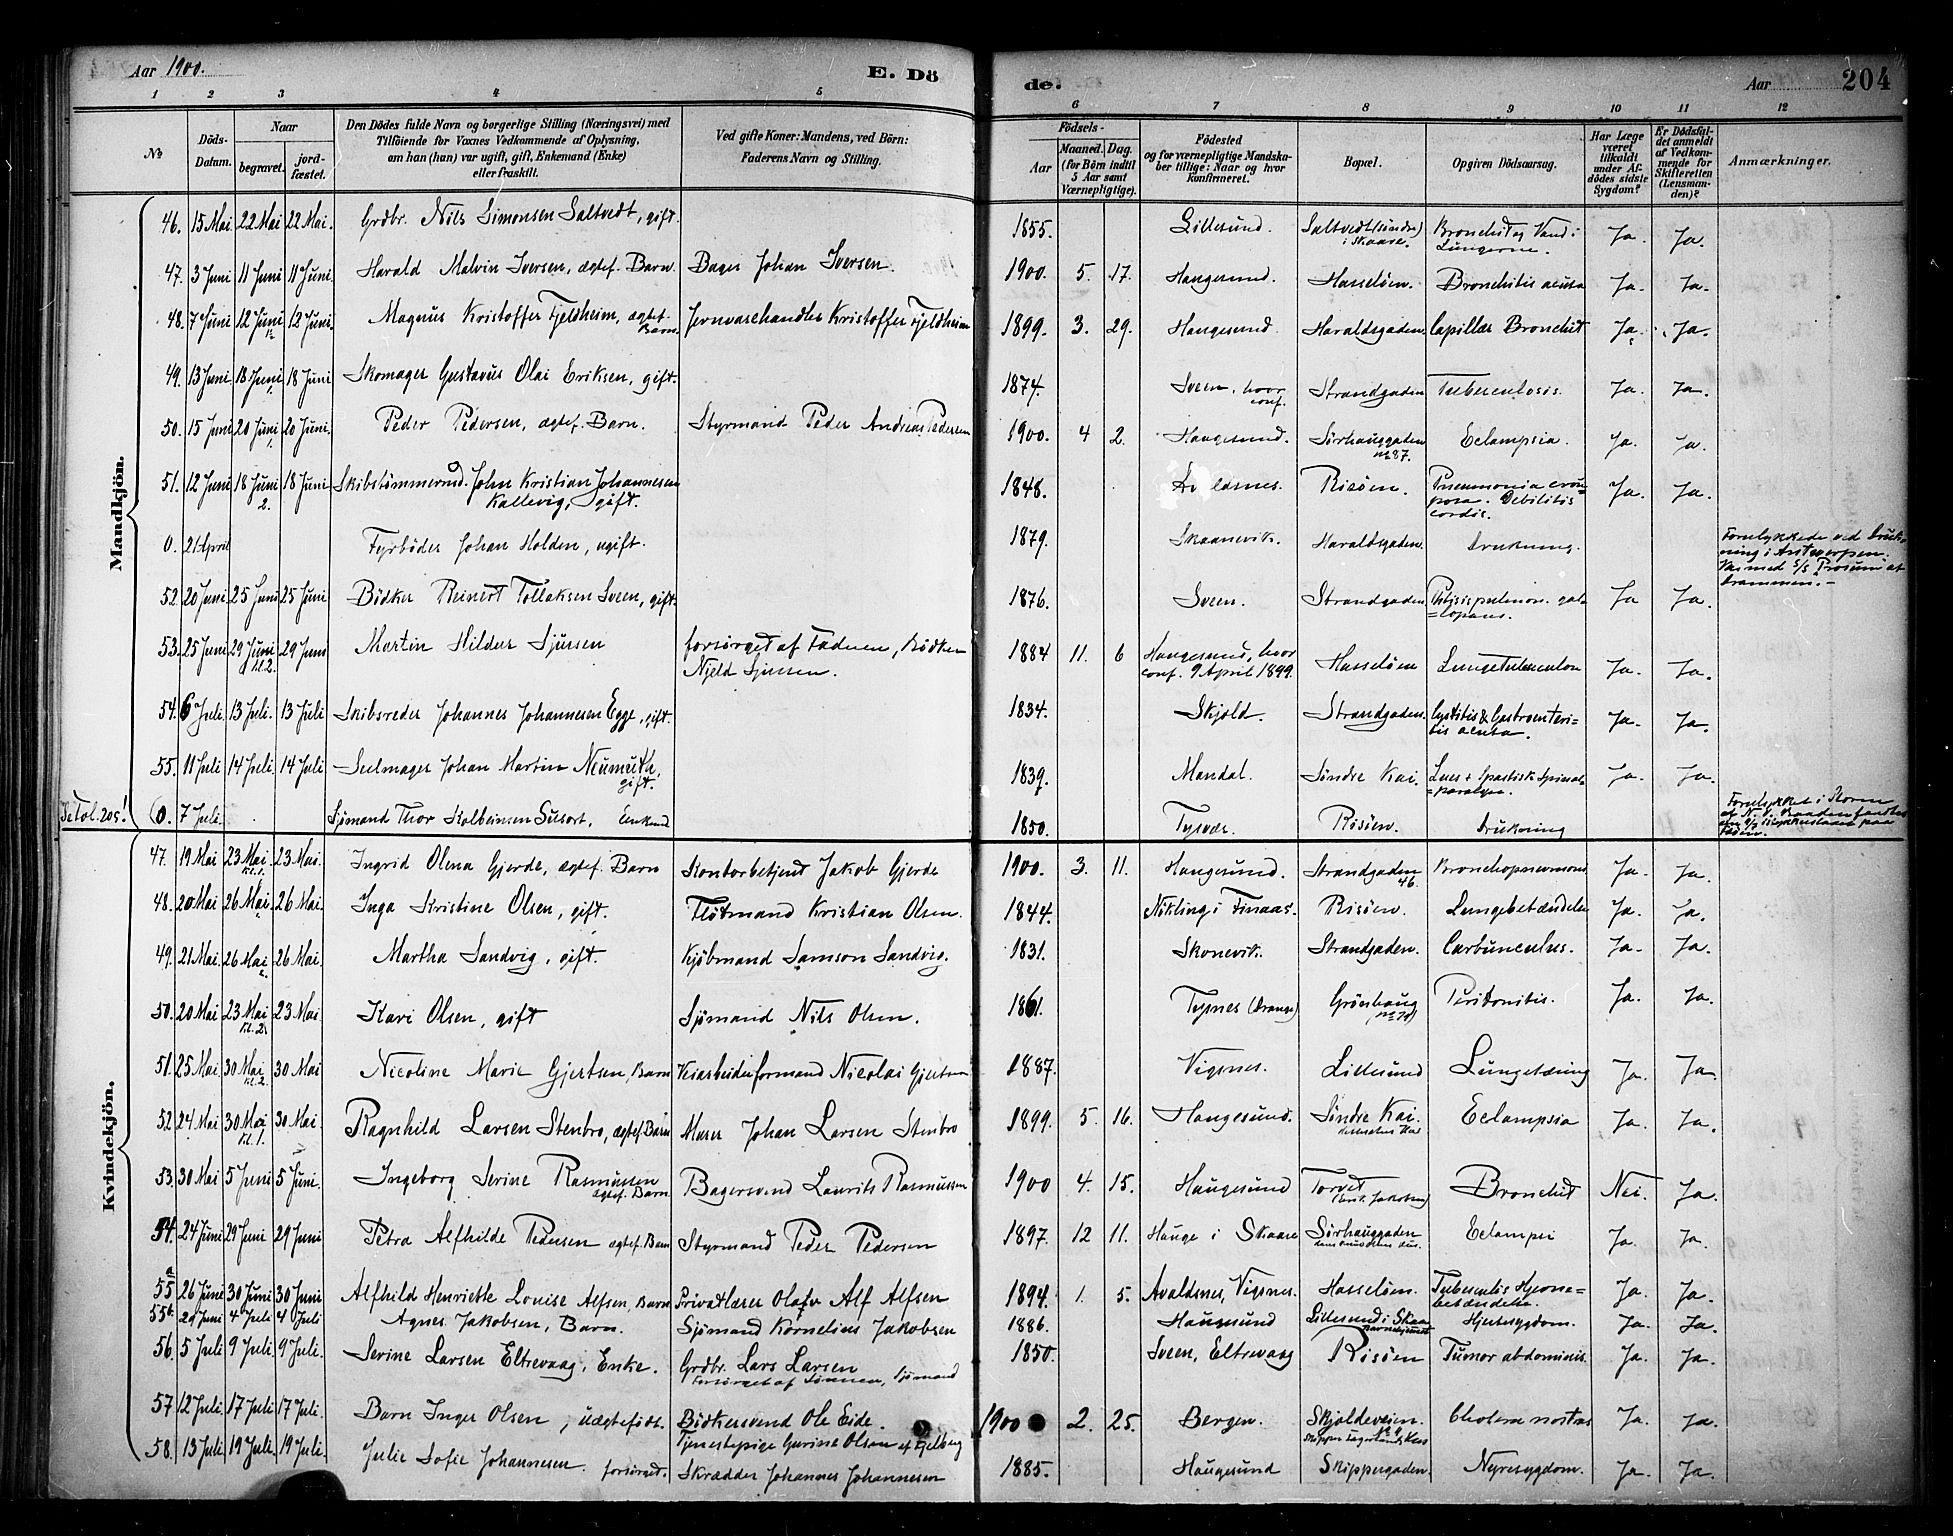 Aar 1900.
E. Dö
de.
Aar
204
1 2 3 4 5 6 7 8 9 10 11 12
No
Döds-Datum.
Naar
begravet.
jord-fæstet.
Den Dödes fulde Navn og borgerlige Stilling (Næringsvei) med
Tilföiende for Voxnes Vedkommende af Oplysning,
om han (hun) var ugift, gift, Enkemand (Enke)
eller fraskilt.
Ved gifte Koner: Mandens, ved Börn:
Faderens Navn og Stilling.
Födsels-
Aar
Maaned. Dag.
(for Börn indtil
5 Aar samt
Værnepligtige).
Födested
og for værnepligtige Mandska-
ber tillige: Naar og hvor
konfirmeret.
Bopæl.
Opgiven Dödsaarsag.
Har Læge
været
tilkaldt
under Af-
dödes sidste
Sygdom?
Er Dödsfal-
det anmeldt
af Vedkom-
mende for
Skifteretten
(Lensman-
den)?
Anmærkninger.
Mandkjön.
46. 15 Mai 22 Mai 22 Mai. Grdbr. Nils Simonsen Saltvedt, gift. 1855. Lillesund. Saltvedt (söndre) i Skaare. Bronchit og Vand i Lungerne. Ja. Ja.
47. 3 Juni 11 Juni 11 Juni. Harald Malvin Iversen, ægtef. Barn. Bager Johan Iversen. 1900. 5. 17. Haugesund. Hasselöen. Bronchitis acuta Ja. Ja.
48. 7 Juni 12 Juni 12 Juni. Magnus Kristoffer Fjeldheim, ægtef. Barn. Jernvarehandler Kristoffer Fjeldheim 1899. 3. 29. Haugesund. Haraldsgaden. Capillær Bronchit Ja. Ja.
49. 13 Juni 18 Juni 18 Juni Skomager Gustavus Olai Eriksen, gift. 1874. Sveen, hvor conf. Strandgaden Tuberculosis. Ja. Ja.
50. 15 Juni 20 Juni 20 Juni. Peder Pedersen, ægtef. Barn. Styrmand Peder Andreas Pedersen 1900. 4 2. Haugesund. Sörhauggaden No 87. Eclampsia. Ja. Ja.
51. 12 Juni 18 Juni 2. 18 Juni Skibstömmermd. John Kristian Johannesen Kallevig, gift. 1848. Risöen. Pneumonia crouposa. Debilitis cordis. Ja. Ja.
0. 21 April Fyrböder Johan Holden, ugift. 1879. Skaanevik. Haraldsgaden. Drukning. Forulykkede ved Drukning i Antwerpen.
52 20 Juni 25 Juni 25 Juni Bödker Reinert Tollaksen Sveen, gift. 1876. Sveen. Strandgaden Phtisis pulmon. galopans. Ja Ja.
53. 25 Juni 29 Juni kl. 2. 29 Juni Martin Hilder Sjursen forsörget af Faderen, Bödker Njeld Sjursen. 1884 11. 6 Haugesund, hvor conf. 9 April 1899. Hasselöen Lungetuberculose Ja. Ja.
54. 6 Juli. 13 Juli. 13 Juli Skibsreder Johannes Johannesen Egge, gift. 1834. Skjold. Strandgaden. Cystitis & Gastroenteritis acuta. Ja. Ja.
55. 11 Juli 14 Juli 14 Juli Seilmager Johan Martin Neumuth, gift. 1839. Mandal. Söndre Kai. Lues + Spastisk Spinalparalyse. Ja. Ja.
Se Fol. 205! (0. 7 Juli. Sjömand Thor Kolbeinsen Enkmd 1850. Tysvær. Risöen. Drukning
Kvindekjön.
47. 19 Mai 23 Mai Kl. 1. 23 Mai. Ingrid Olena Gjerde, ægtef. Barn Kontorbetjent Jakob Gjerde 1900. 3. 11. Haugesund. Strandgaden 46. Bronchopneumoni Ja. Ja.
48. 20 Mai 26 Mai 26 Mai. Inga Kristine Olsen, gift. Flötmand Kristian Olsen. 1844. Nökling i Finaas. Risöen. Lungebetændelse Ja. Ja.
49. 21 Mai 26 Mai 2. 26 Mai. Martha Sandvig, gift. Kjöbmand Samson Sandvig. 1831. Skonevik. Strandgaden. Carbunculus. Ja. Ja.
50. 20 Mai 23 Mai Kl. 2. 23 Mai. Kari Olsen, gift Sjömand Nils Olsen. 1861. Tysnes (Drange) Gröshaug Peritonitis. Ja. Ja.
51. 25 Mai 30 Mai Kl. 2. 30 Mai Nicoline Marie Gjertsen, Barn Veiarbeiderformand Nicolai Gjertsen 1887. Vigsnes. Lillesund Lungetæring Ja. Ja.
52 24 Mai 30 Mai Kl. 1. 30 Mai. Ragnhild Larsen Stenbro, ægtef. Barn Murer Johan Larsen Stenbro 1899. 5. 16. Haugesund. Söndre Kai. Eclampsia Ja. Ja.
53. 30 Mai 5 Juni 5 Juni. Ingeborg Serine Rasmussen ægtef. Barn. Bagersvend Laurits Rasmussen 1900 4. 15. Haugesund Torvet Bronchit Nei. Ja.
54. 24 Juni 29 Juni 29 Juni Petra Alfhilde Pedersen ægtef. Barn Styrmand Peder Pedersen 1897. 12 11. Hauge i Skaare Sörhauggaden Eclampsi Ja. Ja.
55 a 26 Juni 30 Juni 30 Juni Alfhild Henriette Louise Alfsen, Barn Privatlærer Olafv Alf Alfsen 1894. 1. 5. Avaldsnes, Vigsnes. Hasselöen. Tuberculös Hjernebetændelse. Ja. Ja.
55 b. 29 Juni 4 Juli 4 Juli Agnes Jakobsen, Barn. Sjömand Kornelius Jakobsen 1886. Haugesund Lillesund i Skaare Hjertesygdom. Ja. Ja.
56. 5 Juli 9 Juli 9 Juli. Serine Larsen Eltrevaag, Enke. Grdbr. Lars Larsen Forsörget af Sönnen, Sjömand 1850. Sveen, Eltrevaag Risöen Tumor abdominis. Ja. Ja.
57. 12 Juli. 17 Juli. 17 Juli. Barn Inger Olsen, uægtefödt. Bödkersvend Ole Eide. Tjenestepige Gurine Olsen af Fjelberg 1900 2. 25. Bergen. Skjoldeveien. Cholera nostras Ja. Ja.
58. 13 Juli. 19 Juli. 19 Juli. Julie Sofie Johannesen. forsörget. Skrædder Johannes Johannesen 1885. Haugesund Skippergaden. Nyresygdom. Ja. Ja.